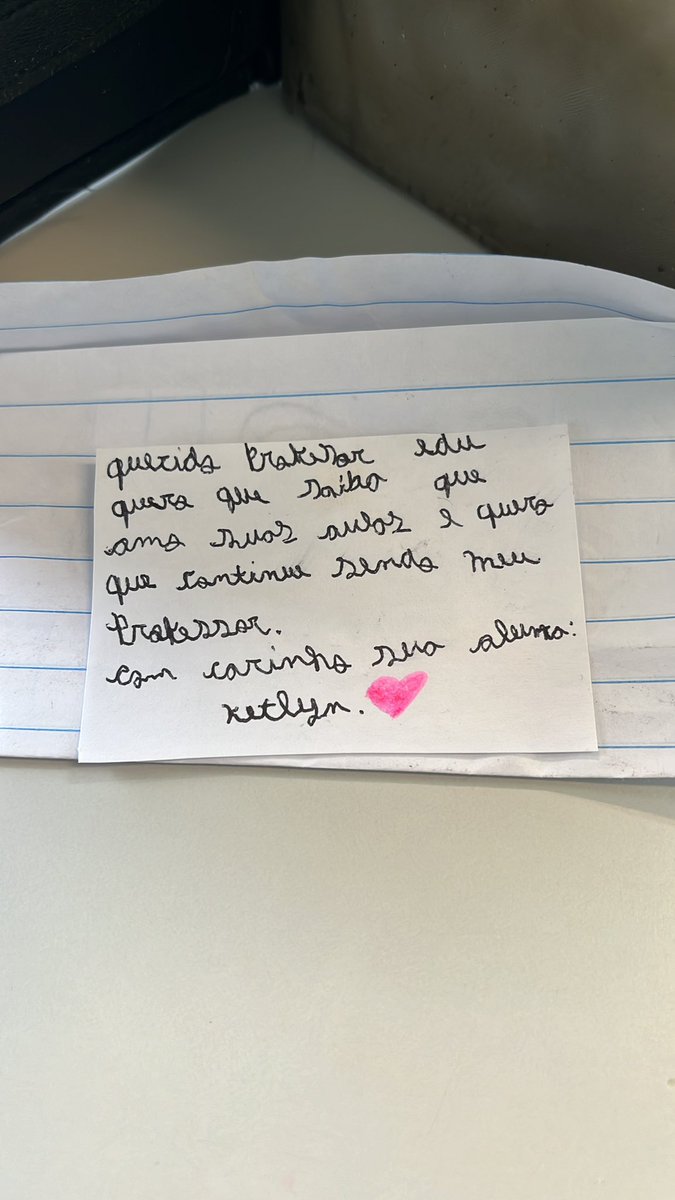 querido Professor edu
quero que saiba que
amo suas aulas e quero
que continue sendo meu
Professor.
com carinho sua aluna:
ketlyn.